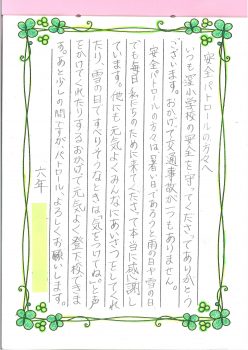 安全パトロールの方々へ
いつも窪小学校の安全を守ってくださってありがとう
ございます。おかげで交通事故が一つもありません。
安全パトロールの方々は暑い日であろうと雨の日や雪の日
でも毎日私たちのために来てくださって本当に感謝し
ています。他にも元気よくみんなにあいさつをしてくれ
たり、雪の日ですべりそうなときは「気をつけてね。」と声
をかけてくれたりするおかげで元気よく登下校できま
す。あと少しの間ですがパトロール、よろしくお願いします。
六年